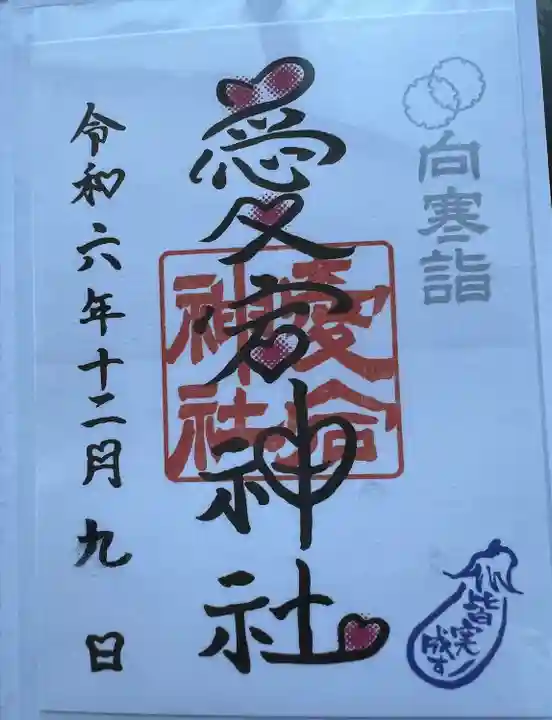 向寒詣
愛宕神社
愛宕
神社
令和六年十二月九日
皆実
成す